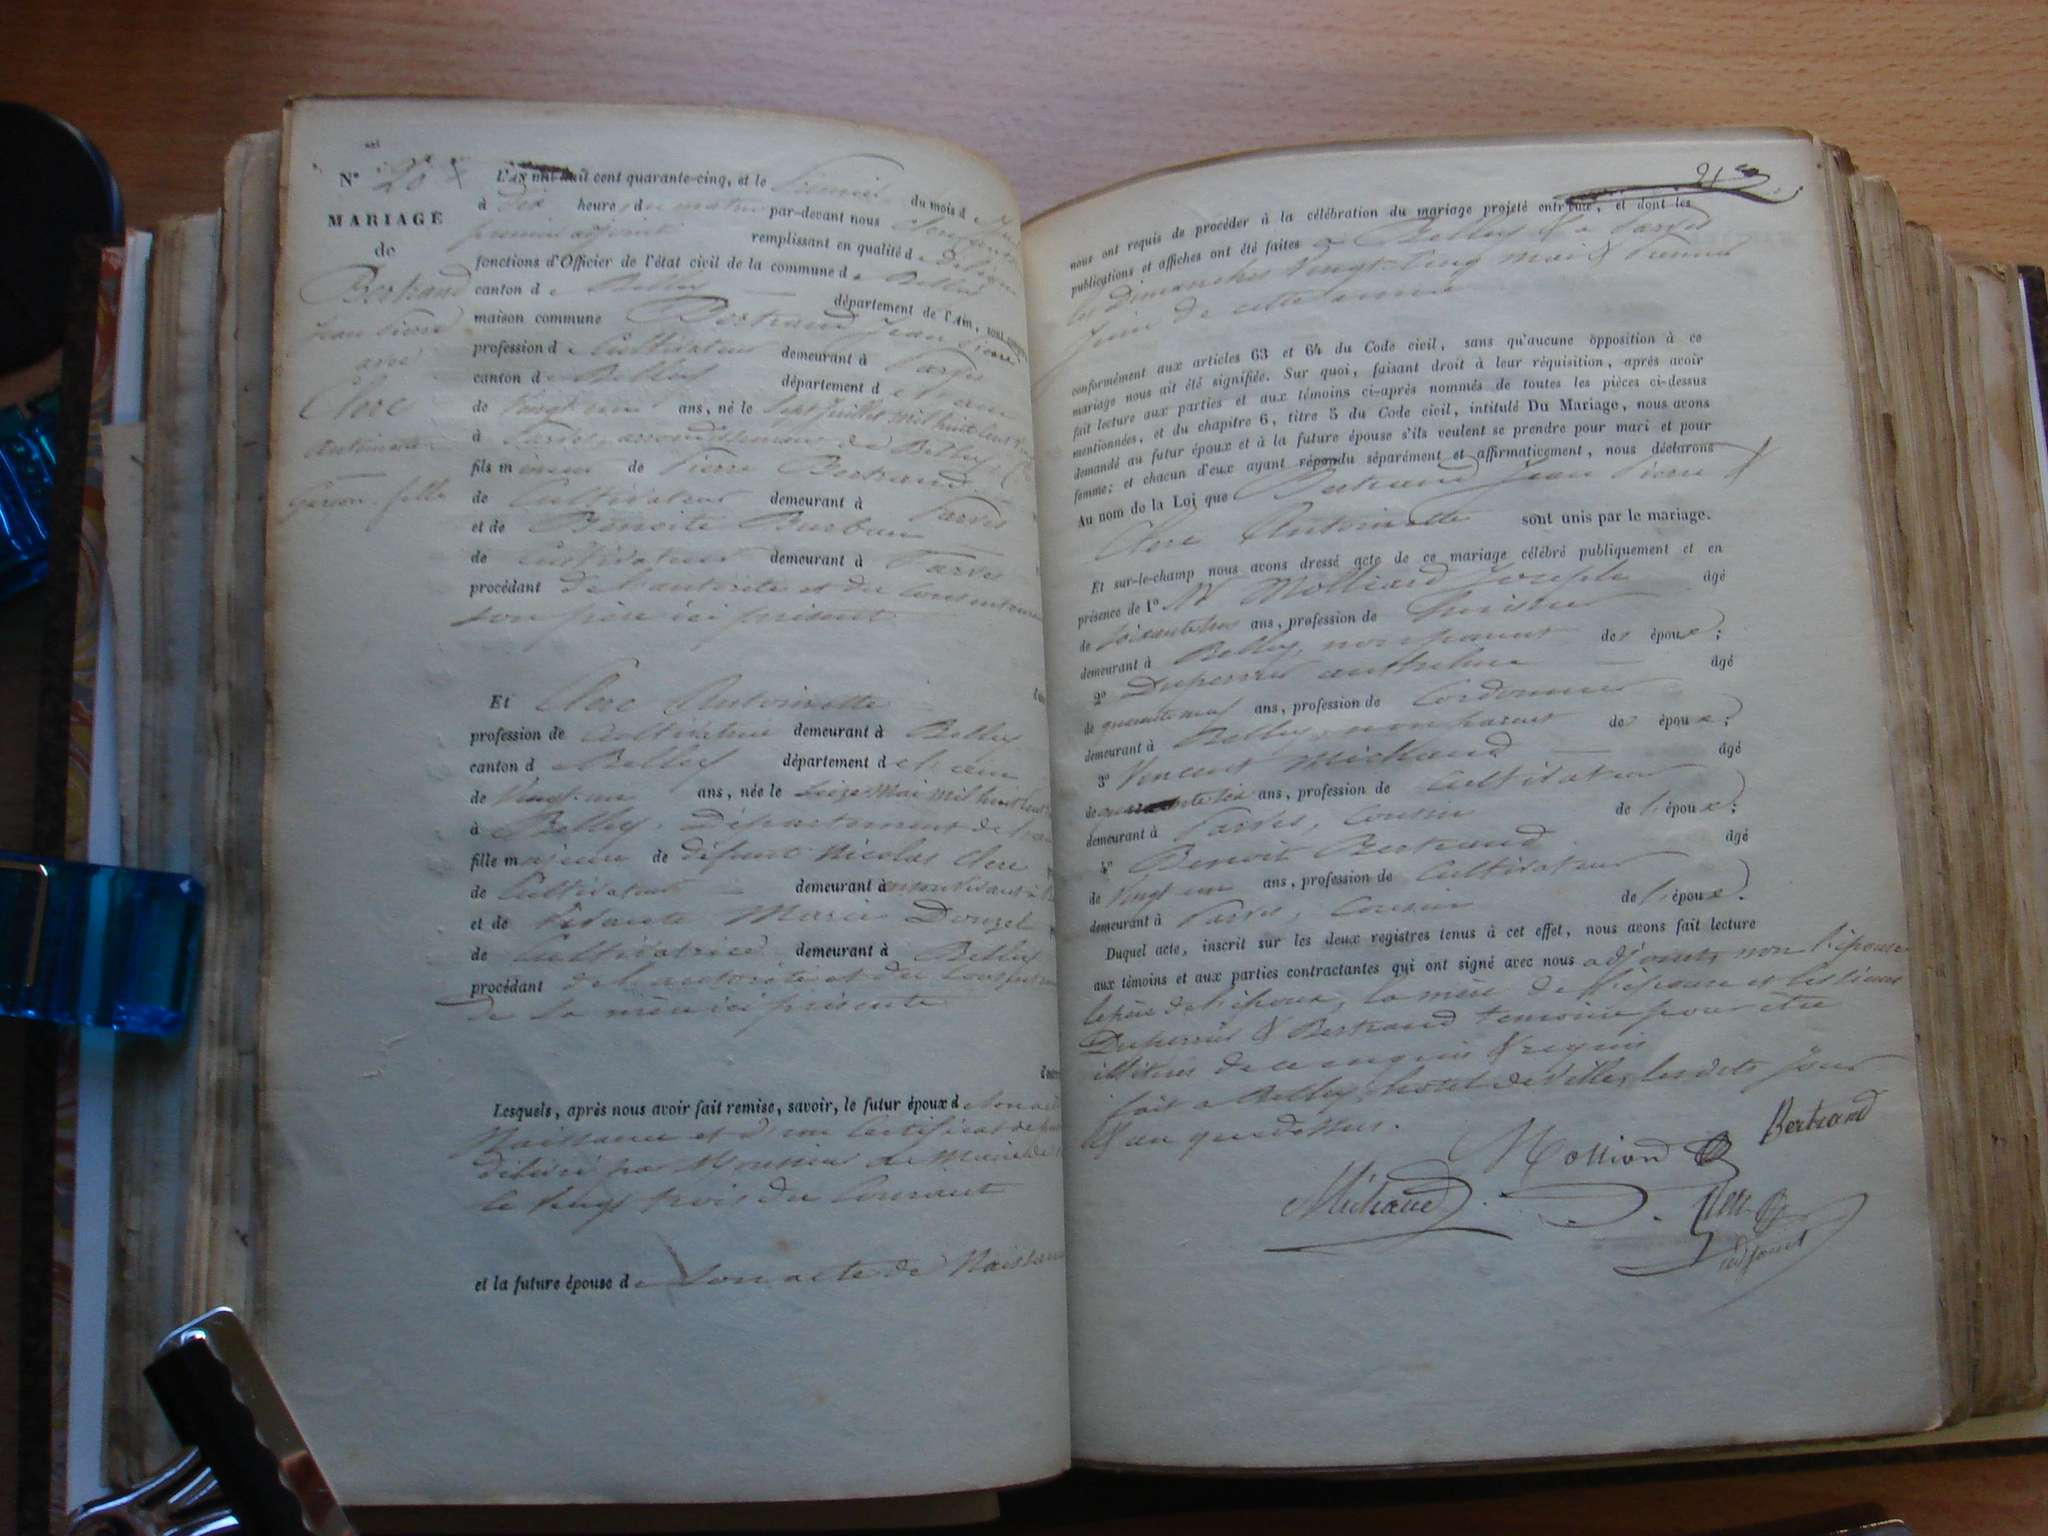 N° 20
MARIAGE
de
Bertrand
Jean Pierre
avec
Clerc
Antoinette
Garçon fille
L'AN mil huit cent quarante-cinq, et le premier du mois d
à dix heure du matin par-devant nous
premier adjoint remplissant en qualité d
fonctions d'Officier de l'état civil de la commune d e Belley
canton d e Belley département de l'Ain, sont
maison commune Bertrand Jean Pierre
profession d e Cultivateur demeurant à Parves
canton d e Belley département d e l'ain
de vingt ans, né le sept juillet mil huit cent
à Parves, arrondissement de Belley
fils m ineur de Pierre Bertrand
de Cultivateur demeurant à Parves
et de Benoite Burban
de Cultivateur demeurant à Parves
procédant de l'autorité et du consentement
son père ici présent
Et Clerc Antoinette
profession de Cultivatrice demeurant à Belley
canton d e Belley département d e l'ain
de Vingt un ans, née le Seize Mai mil huit cent
à Belley, Département de l'ain
fille m ajeure de défunt Nicolas Clerc
de Cultivateur demeurant à
et de vivante Marie Douzel
de Cultivatrice demeurant à Belley
procédant de l'autorité et du
de Sa mère ici présente
Lesquels, après nous avoir fait remise, savoir, le futur époux d e Son acte
Naissance et d'un Certificat de
délivré par Monsieur le Maire de
le vingt trois du Courant
et la future épouse d e Son acte de Naissance
21
nous ont requis de procéder à la célébration du mariage projeté entr'eux, et dont les
publications et affiches ont été faites à Belley & à Parves
les dimanches Vingt-Cinq mai & Premier
Juin de cette année
conformément aux articles 63 et 64 du Code civil, sans qu'aucune opposition à ce
mariage nous ait été signifiée. Sur quoi, faisant droit à leur réquisition, après avoir
fait lecture aux parties et aux témoins ci-après nommés de toutes les pièces ci-dessus
mentionnées, et du chapitre 6, titre 5 du Code civil, intitulé Du Mariage, nous avons
demandé au futur époux et à la future épouse s'ils veulent se prendre pour mari et pour
femme; et chacun d'eux ayant répondu séparément et affirmativement, nous déclarons
Au nom de la Loi que Bertrand Jean Pierre &
Clerc Antoinette sont unis par le mariage.
Et sur-le-champ nous avons dressé acte de ce mariage célébré publiquement et en
présence de 1° Mr Molliard Joseph âgé
de soixante trois ans, profession de huissier
demeurant à Belley, non parent des époux;
2° Duperrier anthelme âgé
de quarante neuf ans, profession de Cordonnier
demeurant à Belley, non parent des époux;
3° Vincent Michaud âgé
de quarante six ans, profession de Cultivateur
demeurant à Parves, Cousin de l'époux;
4° Benoit Bertrand âgé
de Vingt un ans, profession de Cultivateur
demeurant à Parves, Cousin de l'époux.
Duquel acte, inscrit sur les deux registres tenus à cet effet, nous avons fait lecture
aux témoins et aux parties contractantes qui ont signé avec nous adjoint, non l'épouse
le père de l'époux, la mère de l'épouse et les sieurs
Duperrier & Bertrand témoins pour être
illitérés de ce enquis & requis
fait à Belley, hotel de Ville, les dits jour
& an que dessus.
Bertrand
Michaud
adjoint